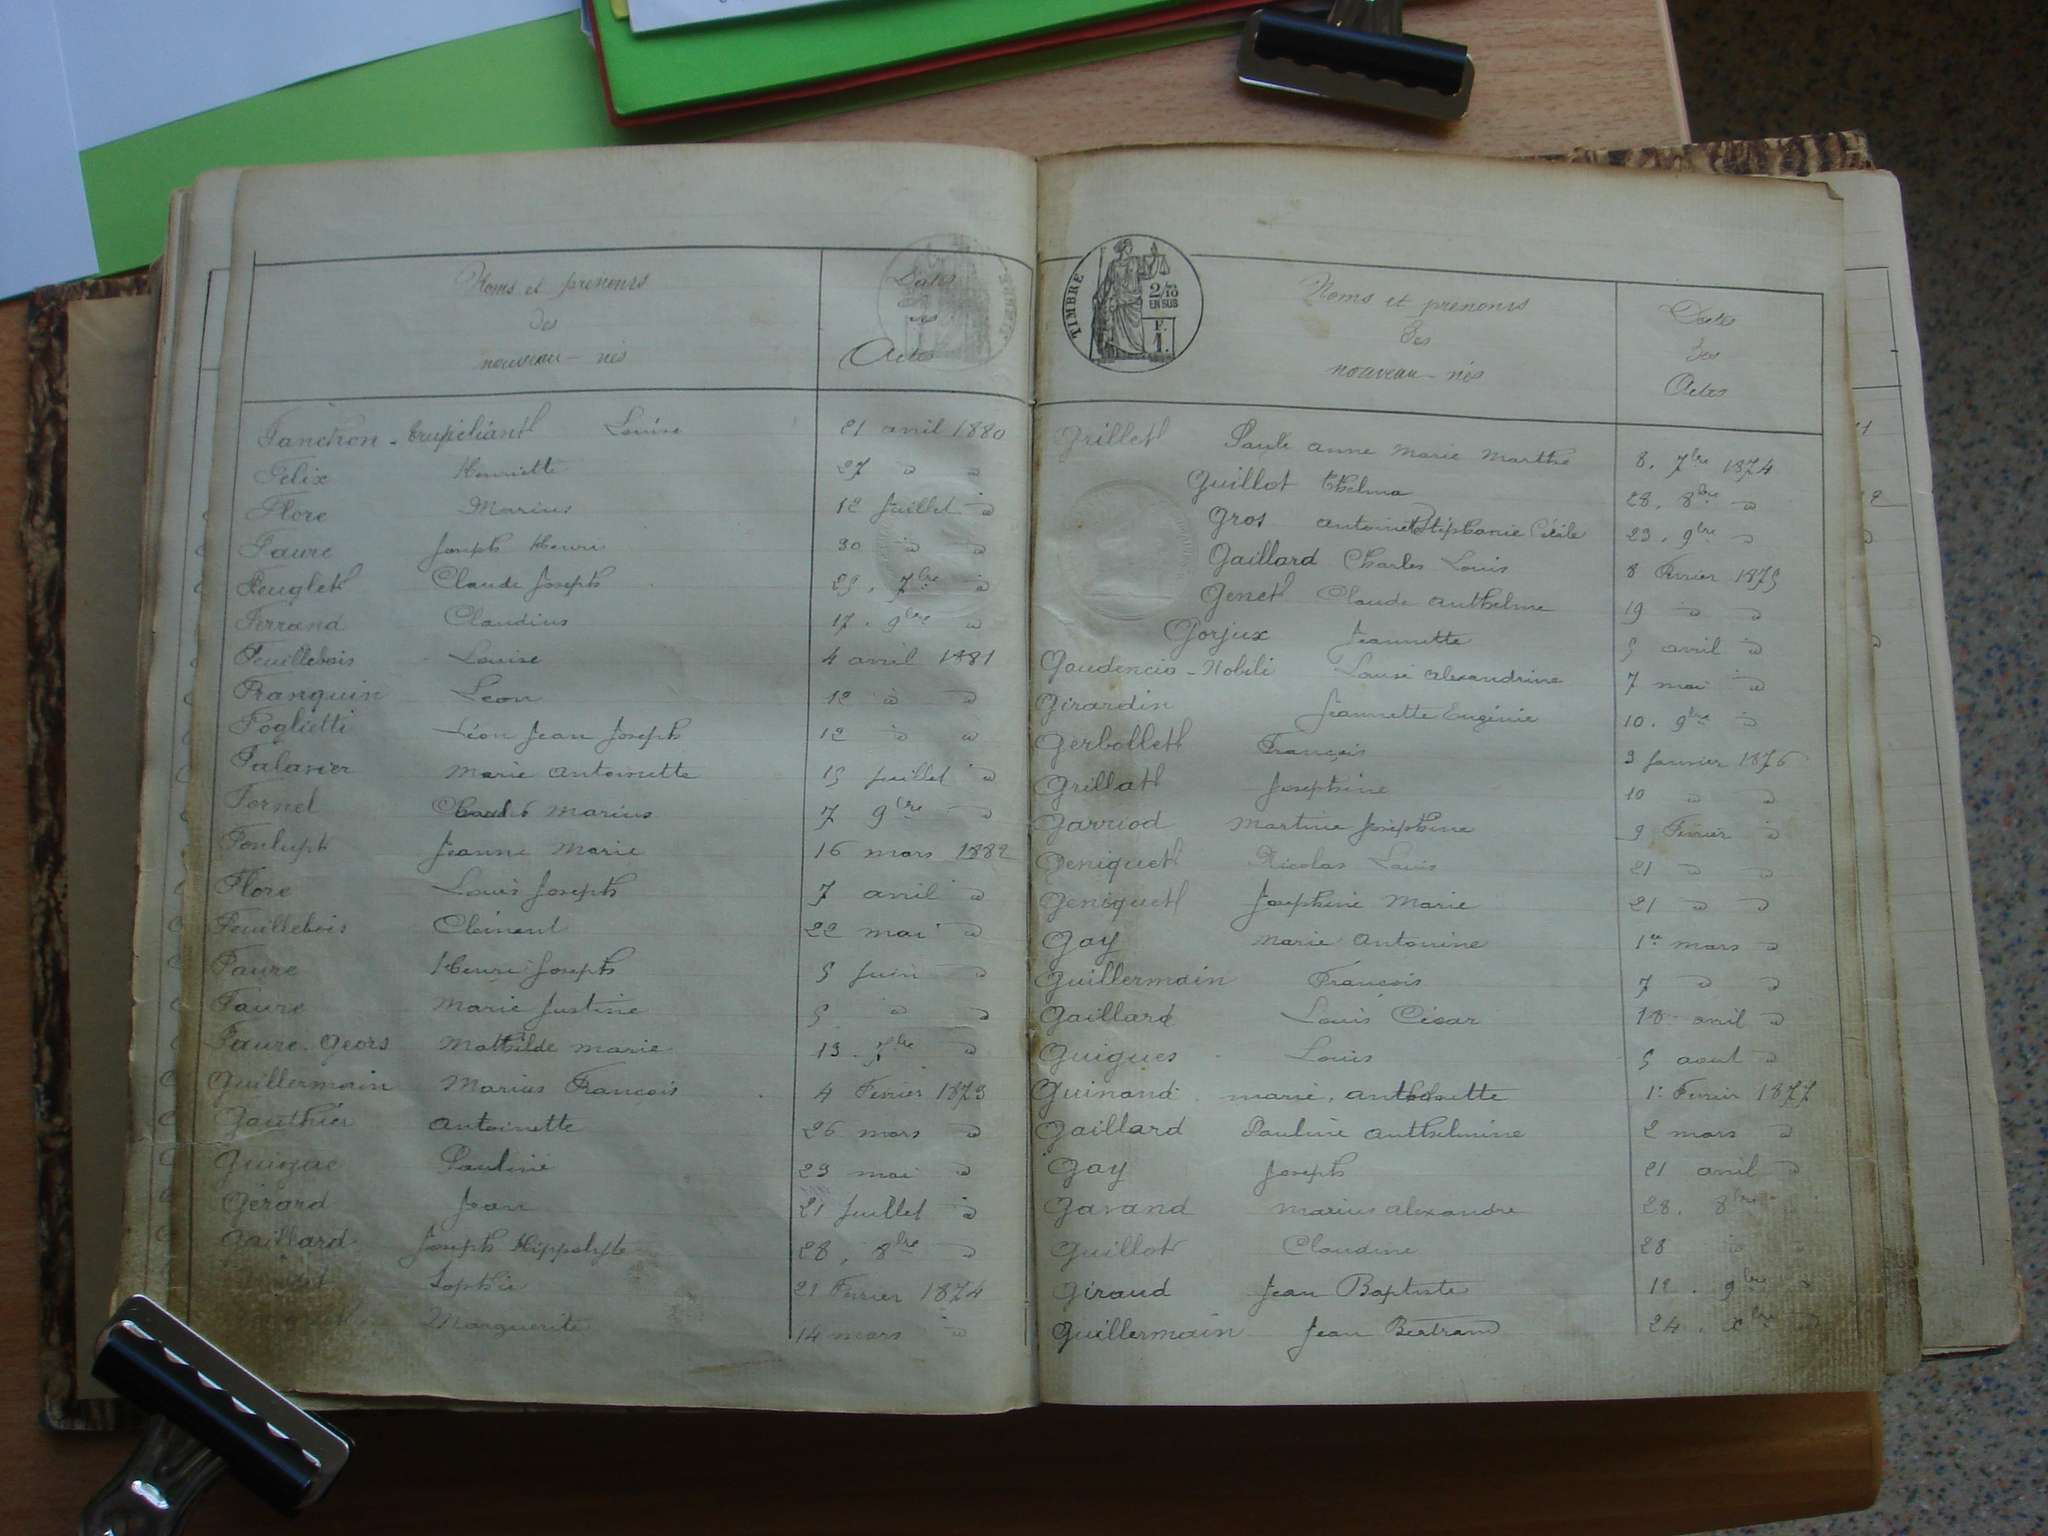 Noms et prenoms
des
nouveau-nés
Dates
des
Actes
Fanchon - Louise 21 avril 1880
Felix Henriette 27 " "
Flore Marius 12 Juillet "
Faure Joseph Henri 30 " "
Feuglet Claude Joseph 29. 7bre "
Ferrand Claudius 17. 9bre "
Feuillebois Louise 4 avril 1881
Franquin Leon 12 " "
Foglietti Léon Jean Joseph 12 " "
Falavier Marie Antoinette 15 juillet "
Fernet Marius 7 9bre "
Fouluph Jeanne Marie 16 mars 1882
Flore Louis Joseph 7 avril "
Feuillebois Clément 22 mai "
Faure Henri Joseph 5 Juin "
Faure Marie Justine 5 " "
Faure-Geors Mathilde Marie 13. "
Guillermain Marius François 4 Fevrier 1873
Gauthier Antoinette 26 mars "
Pauline 23 mai "
Gérard Jean 21 Juillet "
Gaillard Joseph Hippolyte 28. 8bre "
Sophie 21 Fevrier 1874
Marguerite 14 mars "
TIMBRE
2/10
EN SUS
F.
1.
Noms et prenoms
des
nouveau-nés
Dates
des
Actes
Grillet Paule Anne Marie Marthe 8. 7bre 1874
Guillot Thelma 28. 8bre "
Gros Antoinette Stéphanie Cécile 23. 9bre "
Gaillard Charles Louis 8 Fevrier 1875
Genet Claude Anthelme 19 " "
Gorjux Jeannette 5 avril "
Gaudencio-Nobili Louise Alexandrine 7 mai "
Girardin Jeannette Eugénie 10. 9bre "
Gerbollet François 3 Janvier 1876
Grillat Josephine 10 " "
Garriod Martine Joséphine 9 Fevrier "
Geniquet Nicolas Louis 21 " "
Geniquet Josephine Marie 21 " "
Gay Marie Antonine 1er mars "
Guillermain François 7 " "
Gaillard Louis César 18 avril "
Guigues Louis 5 aout "
Guinand Marie, 1er Fevrier 1877
Gaillard Pauline Anthelmine 2 mars "
Gay Joseph 21 avril "
Gavand Marius Alexandre 28. 8bre "
Guillot Claudine 28 " "
Giraud Jean Baptiste 12. 9bre "
Guillermain Jean Bertrand 24. Xbre "